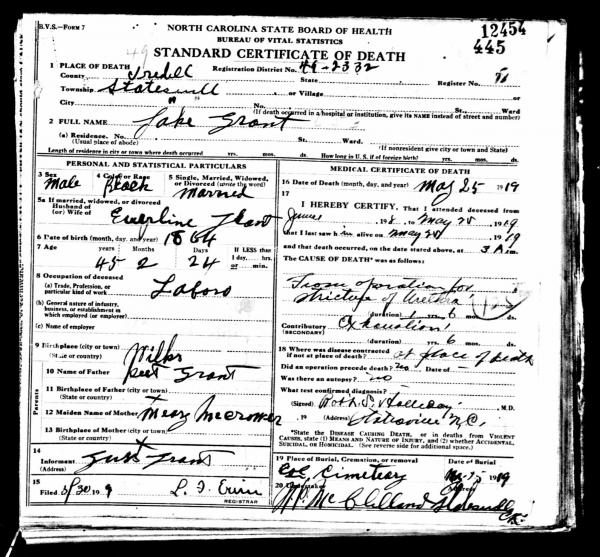 B.V.S.—Form 7
NORTH CAROLINA STATE BOARD OF HEALTH
BUREAU OF VITAL STATISTICS
STANDARD CERTIFICATE OF DEATH
12454
445
49
1 PLACE OF DEATH
County Iredell Registration District No. 49-2332 State Register No.
Township Statesvill or Village or
City " No. St. Ward
(If death occurred in a hospital or institution, give its NAME instead of street and number)
2 FULL NAME Jake Grant
(a) Residence. No. St. Ward.
(Usual place of abode) (If nonresident give city or town and State)
Length of residence in city or town where death occurred yrs. mos. ds. How long in U. S. if of foreign birth? yrs. mos. ds.
PERSONAL AND STATISTICAL PARTICULARS
3 Sex Male
4 Color or Race Black
5 Single, Married, Widowed, or Divorced (write the word) Married
5a If married, widowed, or divorced
Husband of
(or) Wife of Everline Grant
6 Date of birth (month, day, and year) 1864
7 Age years Months Days If LESS than
45 2 24 1 day, hrs.
or min.
8 Occupation of deceased
(a) Trade, Profession, or
particular kind of work Labors
(b) General nature of industry,
business, or establishment in
which employed (or employer)
(c) Name of employer
9 Birthplace (city or town) Wilks
(State or country)
10 Name of Father Grant
Parents
11 Birthplace of Father (city or town)
(State or country)
12 Maiden Name of Mother
13 Birthplace of Mother (city or town)
(State or country)
14
Informant Grant
(Address)
15
Filed 5/30 19 9 L. F. Ervin
REGISTRAR
MEDICAL CERTIFICATE OF DEATH
16 Date of Death (month, day, and year) May 25 1919
17
I HEREBY CERTIFY, That I attended deceased from
June 191 8, to May 25 1919
that I last saw h alive on May 25 1919
and that death occurred, on the date stated above, at 3 A m.
The CAUSE OF DEATH* was as follows:
From operation for
stricture of Urethra
(duration) 1 yrs. 6 mos. ds.
Contributory Exhaustion
(SECONDARY)
(duration) yrs. 6 mos. ds.
18 Where was disease contracted
if not at place of death? at place of death
Did an operation precede death? no Date of -
Was there an autopsy? no
What test confirmed diagnosis?
(Signed) Holliday M.D.
, 19 (Address) Statesville N.C.
*State the DISEASE CAUSING DEATH, or in deaths from VIOLENT
CAUSES, state (1) MEANS AND NATURE OF INJURY, and (2) whether ACCIDENTAL,
SUICIDAL, or HOMICIDAL. (See reverse side for additional space.)
19 Place of Burial, Cremation, or removal Date of Burial
Col. Cimetary 1919
20 Undertaker Address
McClelland Statesville